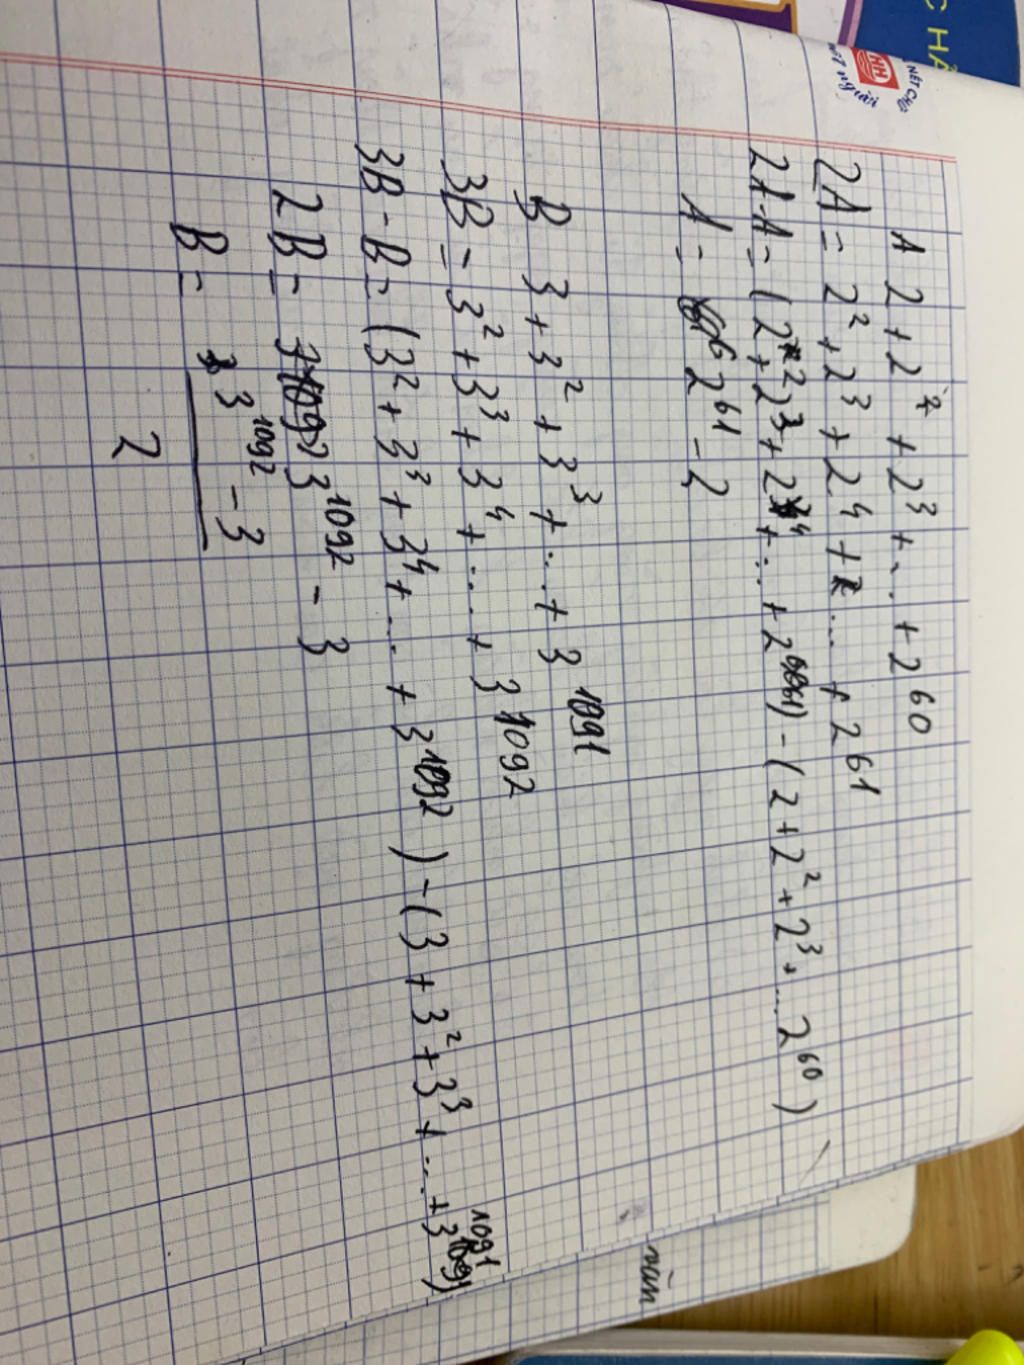 C HÀ
NÉT CHỮ
NÉT người
A 2 + 2² + 2³ + ... + 2⁶⁰
2A = 2² + 2³ + 2⁴ + ... + 2⁶¹
2A - A = (2² + 2³ + 2⁴ + ... + 2⁶¹) - (2 + 2² + 2³ + ... 2⁶⁰)
A = 2⁶¹ - 2
B 3 + 3² + 3³ + ... + 3¹⁰⁹¹
3B = 3² + 3³ + 3⁴ + ... + 3¹⁰⁹²
3B - B = (3² + 3³ + 3⁴ + ... + 3¹⁰⁹²) - (3 + 3² + 3³ + ... + 3¹⁰⁹¹)
2B = 3¹⁰⁹² - 3
B = 3¹⁰⁹² - 3
2